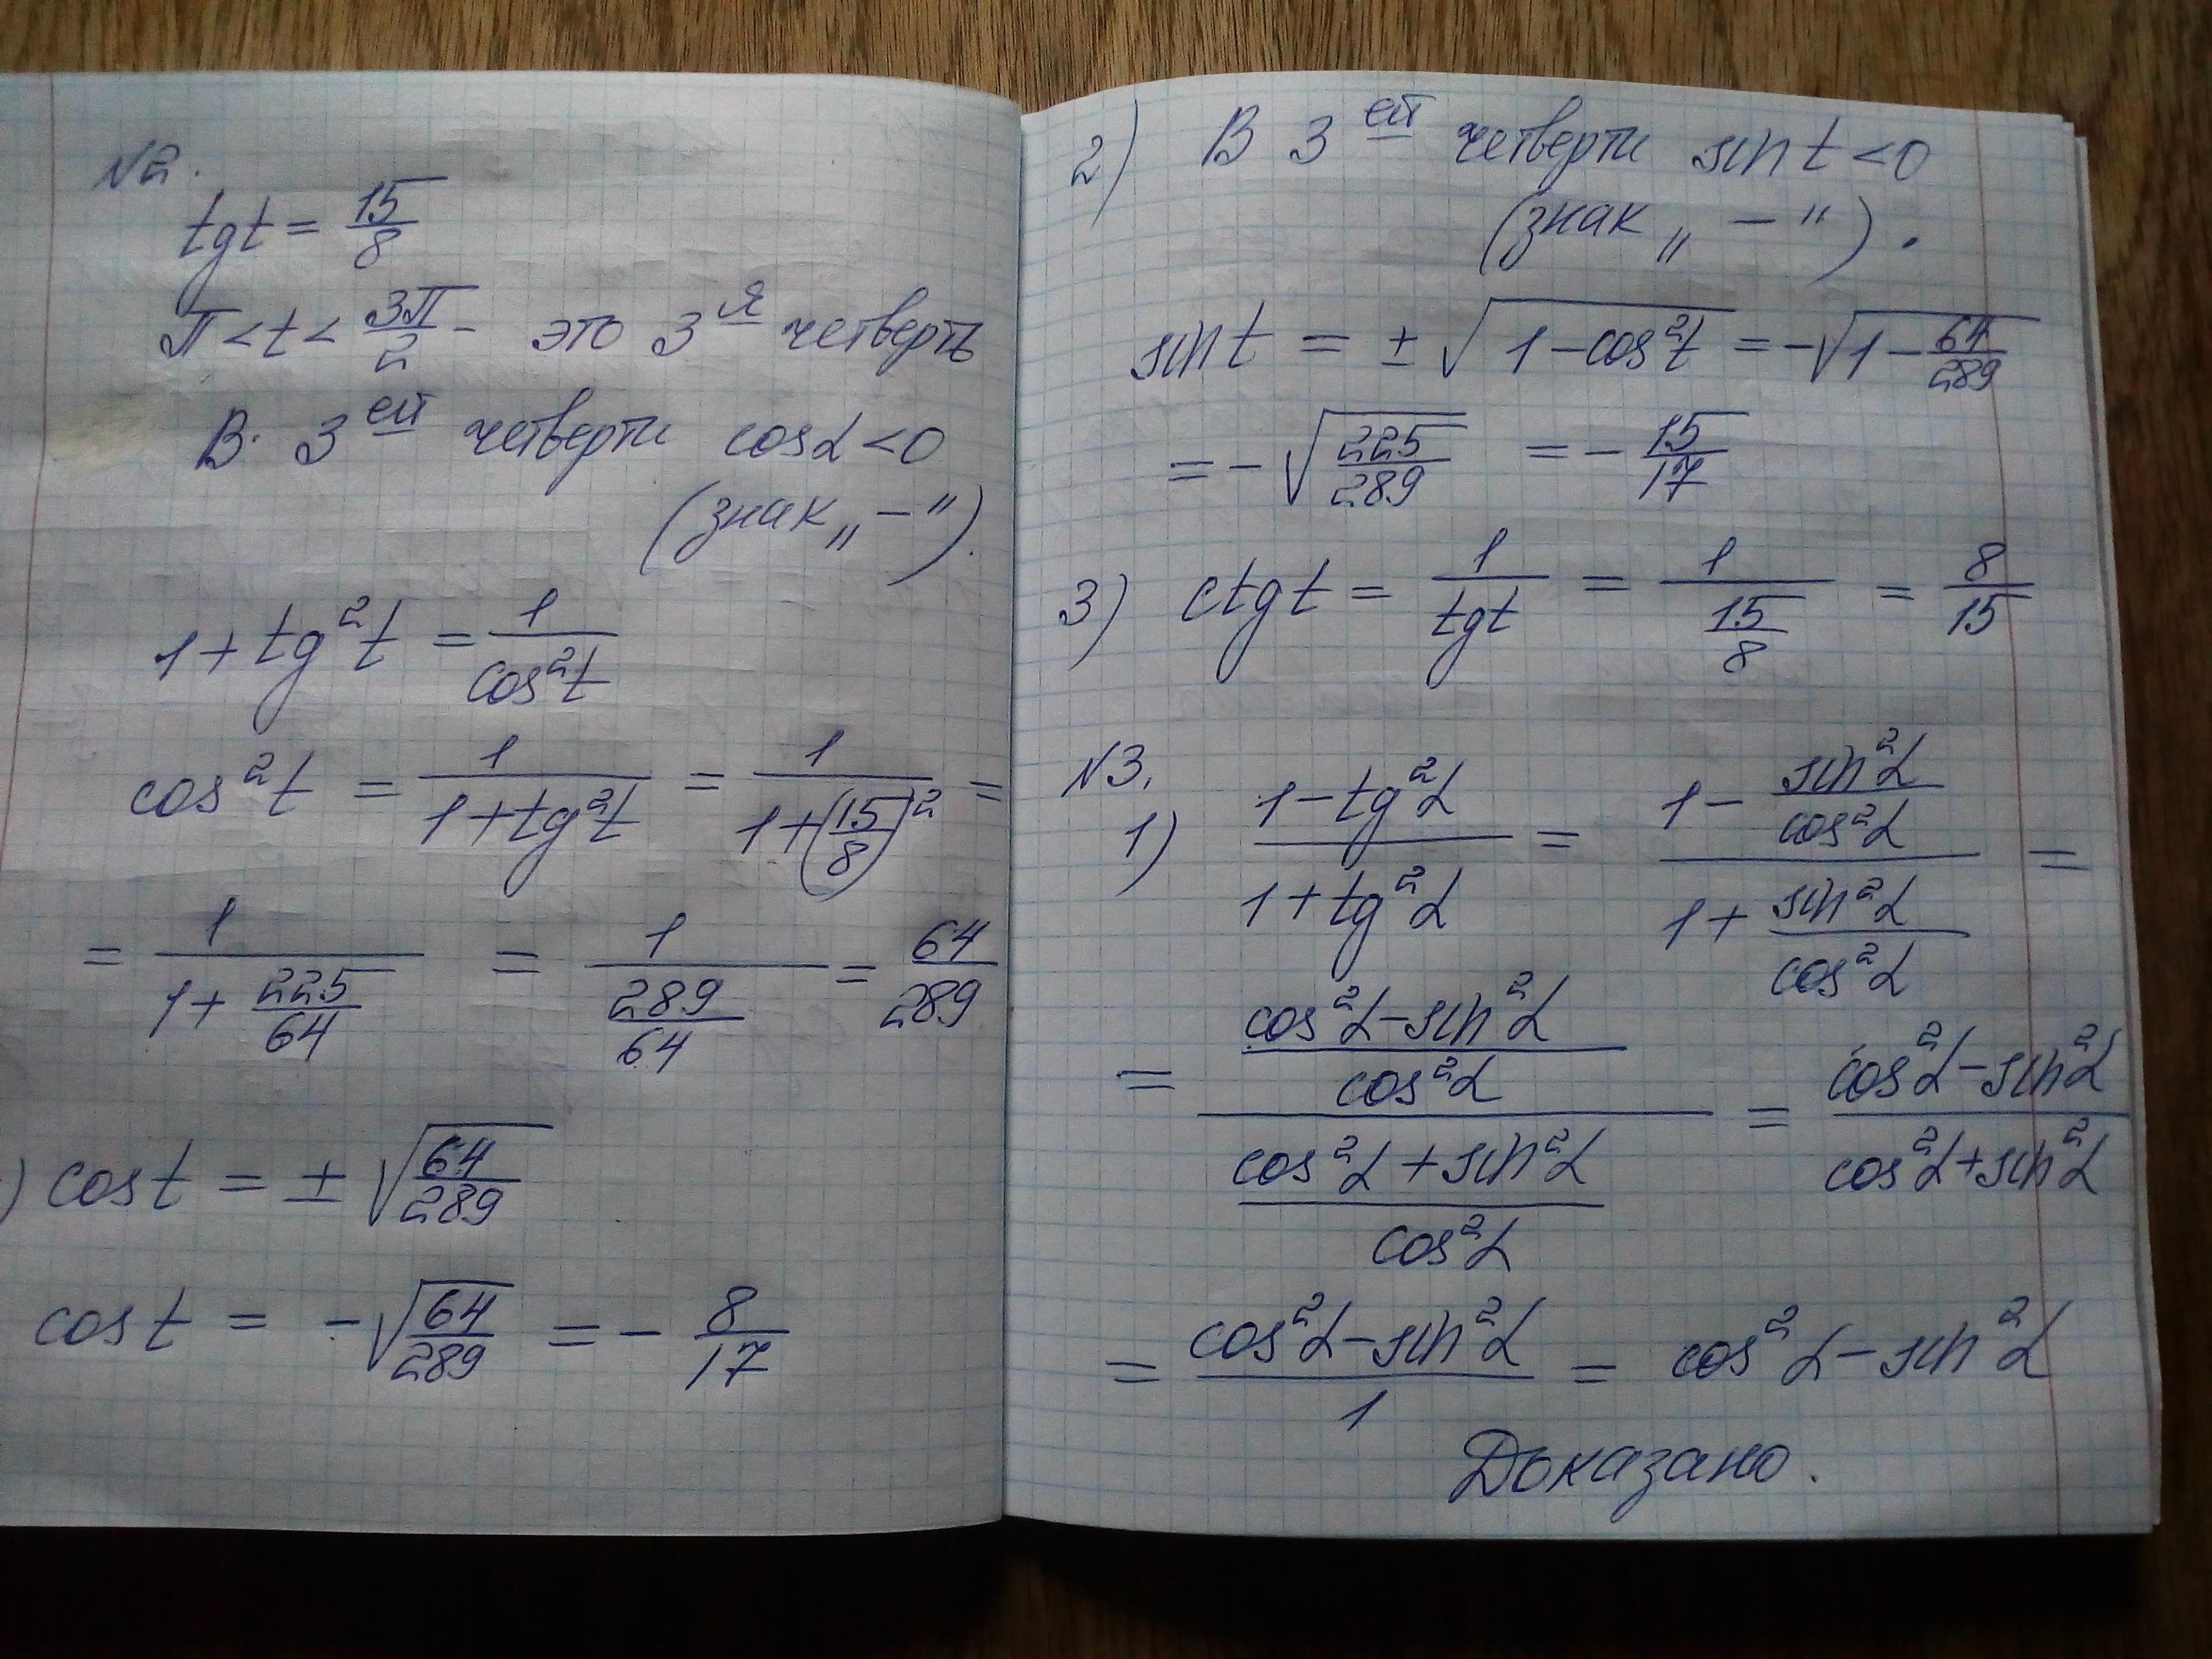 №2.
tgt = 15/8
π < t < 3π/2 - это 3я четверть
В 3ей четверти cosα < 0
(знак „ − ").
1 + tg²t = 1/cos²t
cos²t = 1/(1 + tg²t) = 1/(1 + (15/8)²) =
= 1/(1 + 225/64) = 1/(289/64) = 64/289
) cos t = ± √(64/289)
cos t = − √(64/289) = − 8/17
2) В 3ей четверти sin t < 0
(знак „ − ").
sin t = ± √(1 − cos²t) = −√(1 − 64/289)
= − √(225/289) = − 15/17
3) ctg t = 1/tgt = 1/(15/8) = 8/15
№3.
1) (1 − tg²α)/(1 + tg²α) = (1 − sin²α/cos²α)/(1 + sin²α/cos²α) =
= ((cos²α − sin²α)/cos²α)/((cos²α + sin²α)/cos²α) = (cos²α − sin²α)/(cos²α + sin²α)
= (cos²α − sin²α)/1 = cos²α − sin²α
Доказано.